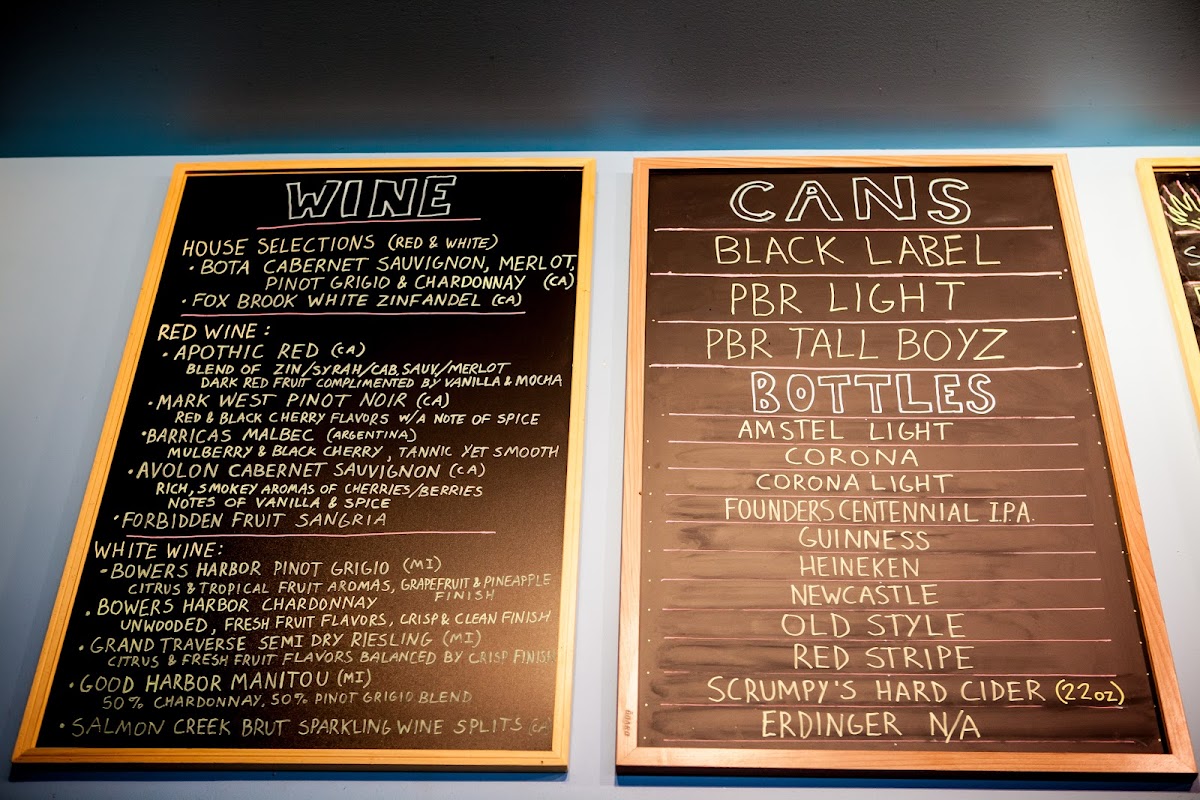 WINE
HOUSE SELECTIONS (RED & WHITE)
• BOTA CABERNET SAUVIGNON, MERLOT,
PINOT GRIGIO & CHARDONNAY (CA)
• FOX BROOK WHITE ZINFANDEL (CA)
RED WINE:
• APOTHIC RED (CA)
BLEND OF ZIN/SYRAH/CAB.SAUV/MERLOT
DARK RED FRUIT COMPLIMENTED BY VANILLA & MOCHA
• MARK WEST PINOT NOIR (CA)
RED & BLACK CHERRY FLAVORS W/A NOTE OF SPICE
• BARRICAS MALBEC (ARGENTINA)
MULBERRY & BLACK CHERRY, TANNIC YET SMOOTH
• AVOLON CABERNET SAUVIGNON (CA)
RICH, SMOKEY AROMAS OF CHERRIES/BERRIES
NOTES OF VANILLA & SPICE
• FORBIDDEN FRUIT SANGRIA
WHITE WINE:
• BOWERS HARBOR PINOT GRIGIO (MI)
CITRUS & TROPICAL FRUIT AROMAS, GRAPEFRUIT & PINEAPPLE
FINISH
• BOWERS HARBOR CHARDONNAY
UNWOODED, FRESH FRUIT FLAVORS, CRISP & CLEAN FINISH
• GRAND TRAVERSE SEMI DRY RIESLING (MI)
CITRUS & FRESH FRUIT FLAVORS BALANCED BY CRISP FINISH
• GOOD HARBOR MANITOU (MI)
50% CHARDONNAY, 50% PINOT GRIGIO BLEND
• SALMON CREEK BRUT SPARKLING WINE SPLITS (CA)
CANS
BLACK LABEL
PBR LIGHT
PBR TALL BOYZ
BOTTLES
AMSTEL LIGHT
CORONA
CORONA LIGHT
FOUNDERS CENTENNIAL I.P.A.
GUINNESS
HEINEKEN
NEWCASTLE
OLD STYLE
RED STRIPE
SCRUMPY'S HARD CIDER (22oz)
ERDINGER N/A